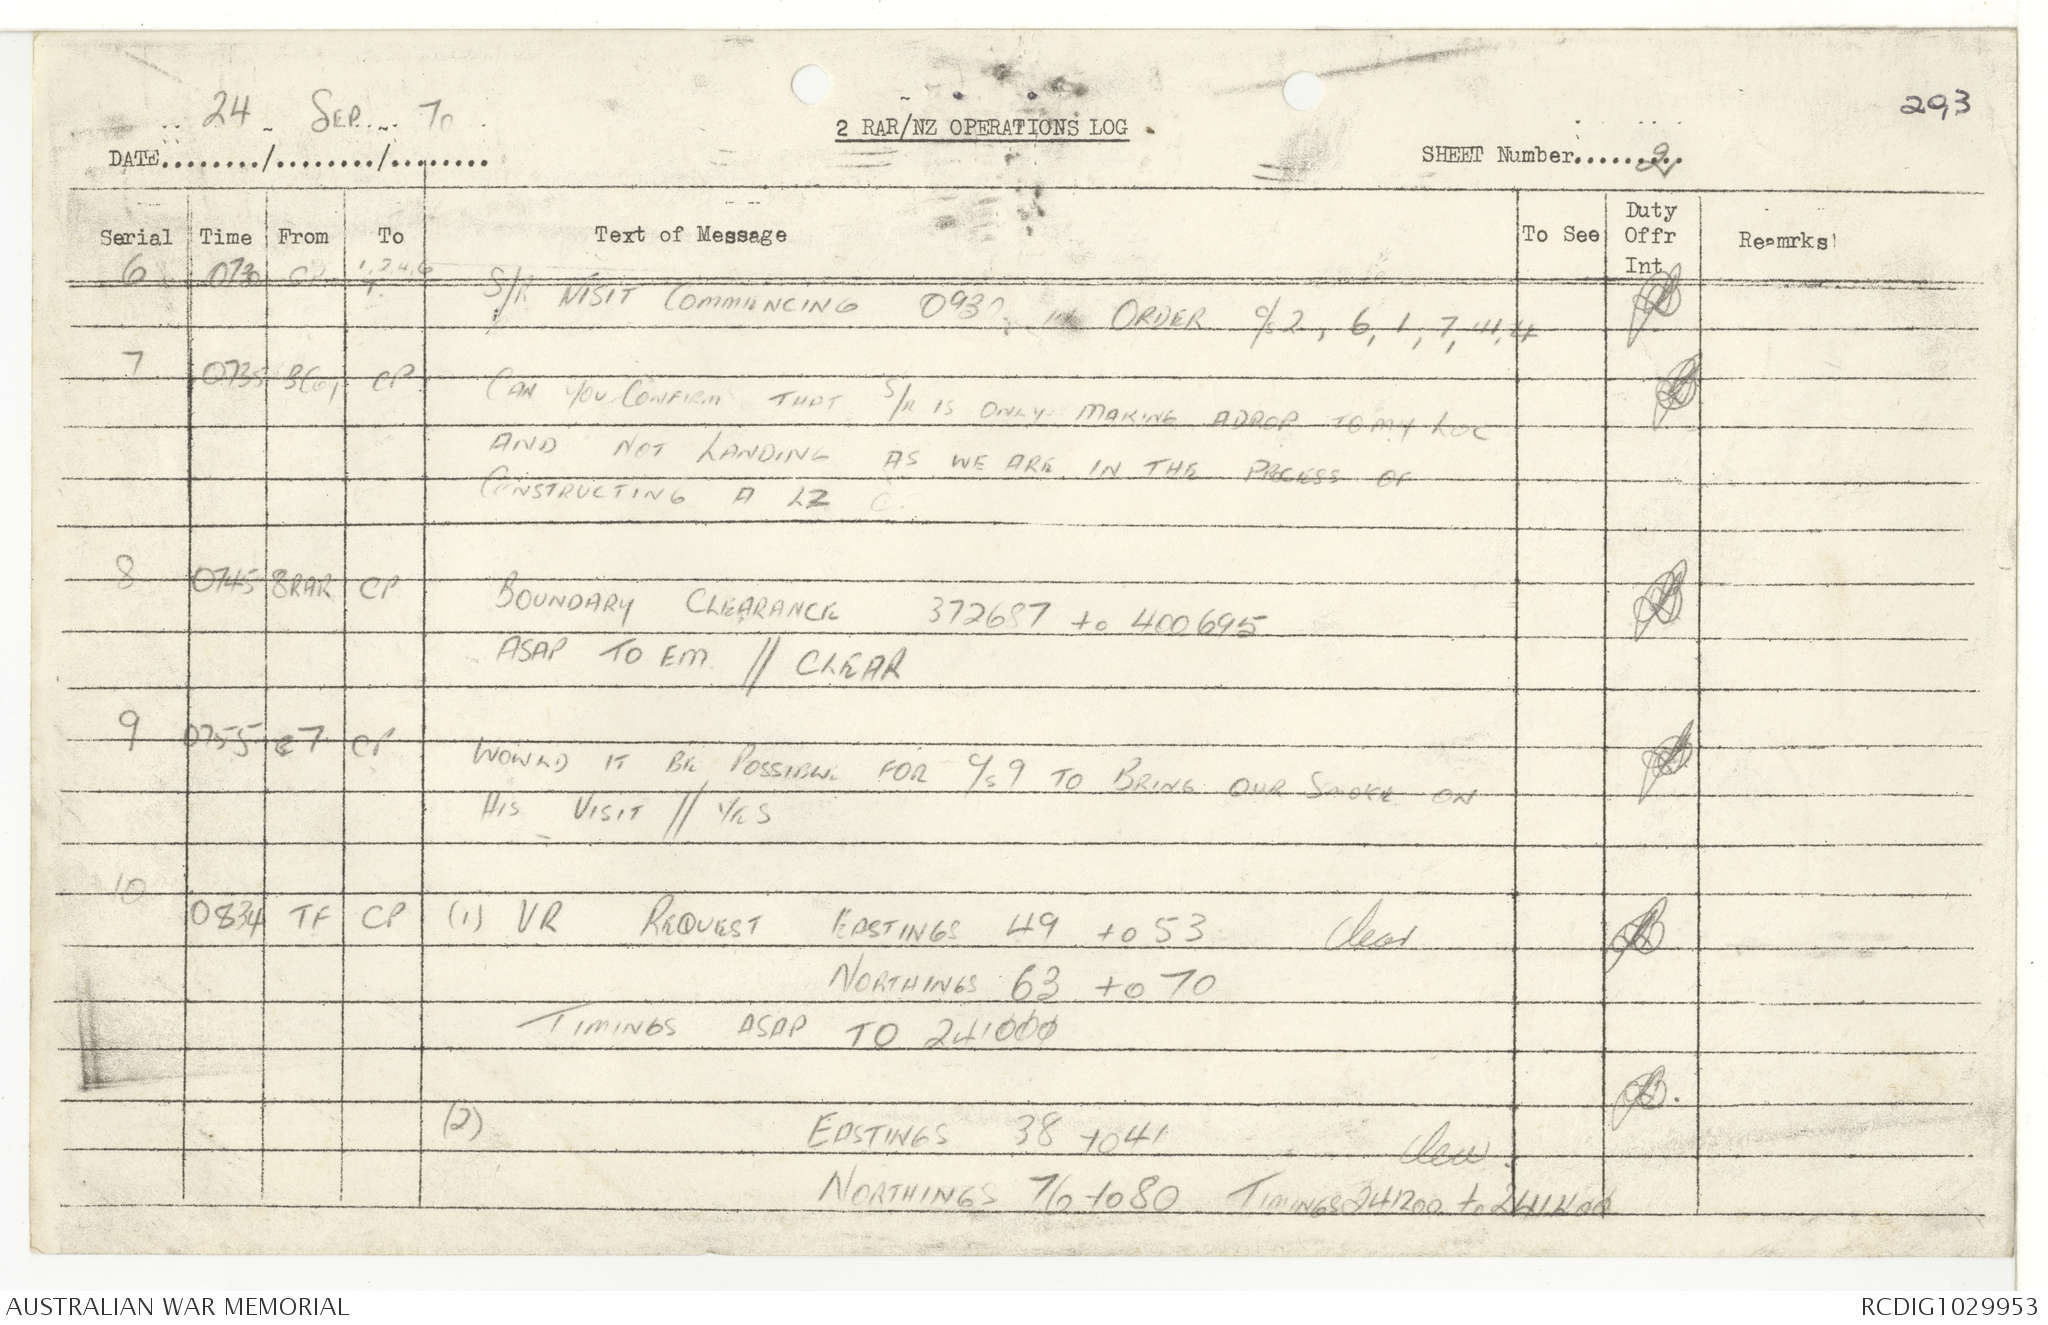 293
24 SEP 70
2 RAR/NZ OPERATIONS LOG
DATE......../......../........
SHEET Number........ 2
Serial Time From To Text of Message To See Duty Offr Int Reamrks
6 0730 CP 1,2,4,6 S/R VISIT COMMENCING 0930, ORDER C/S 2, 6, 1, 7, 41, 4
7 0735 CP CAN YOU CONFIRM THAT S/R IS ONLY MAKING A DROP TO MY LOC
AND NOT LANDING AS WE ARE IN THE PROCESS OF
CONSTRUCTING A LZ
8 0745 8RAR CP BOUNDARY CLEARANCE 372687 to 400695
ASAP TO EM // CLEAR
9 0755 7 CP WOULD IT BE POSSIBLE FOR C/S 9 TO BRING OUR SMOKE ON
HIS VISIT // YES
10
0834 TF CP (1) VR REQUEST EASTINGS 49 to 53 Clear
NORTHINGS 63 to 70
TIMINGS ASAP TO 241000
(2) EASTINGS 38 to 41 Clear.
NORTHINGS 76 to 80 TIMINGS 241200 to 241400
AUSTRALIAN WAR MEMORIAL RCDIG1029953